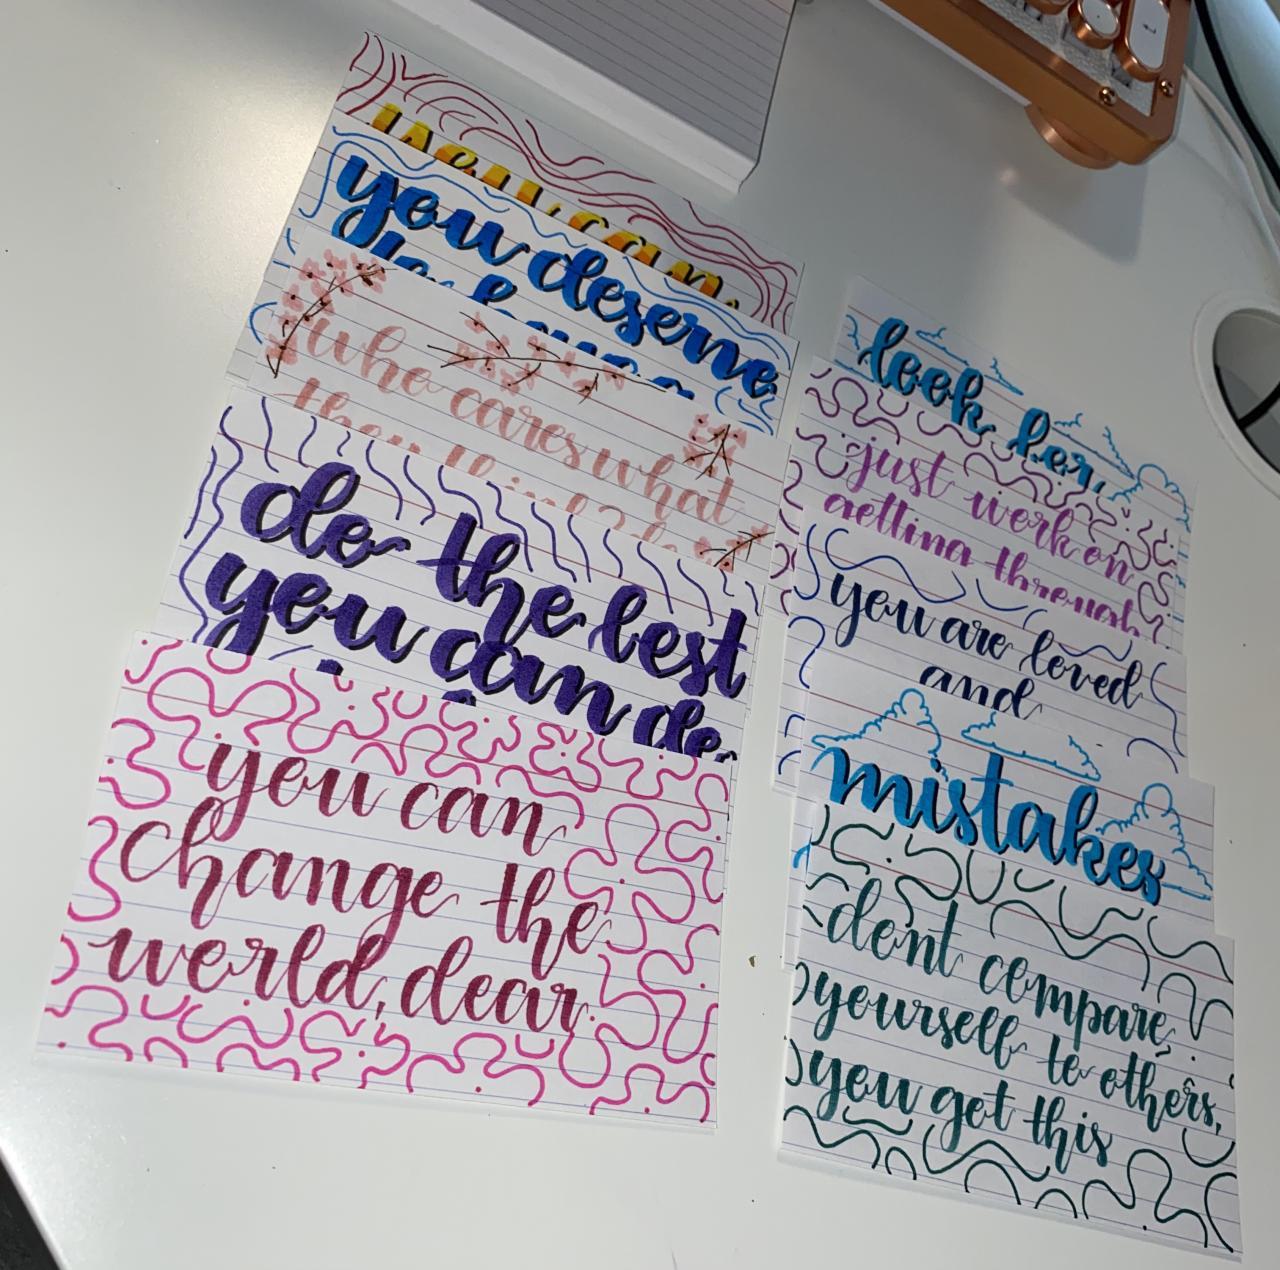 you can
you deserve
who cares what
do the best
you can do
you can
change the
world, dear
look her,
just work on
getting through
you are loved
and
mistakes
dont compare
yourself to others,
you get this